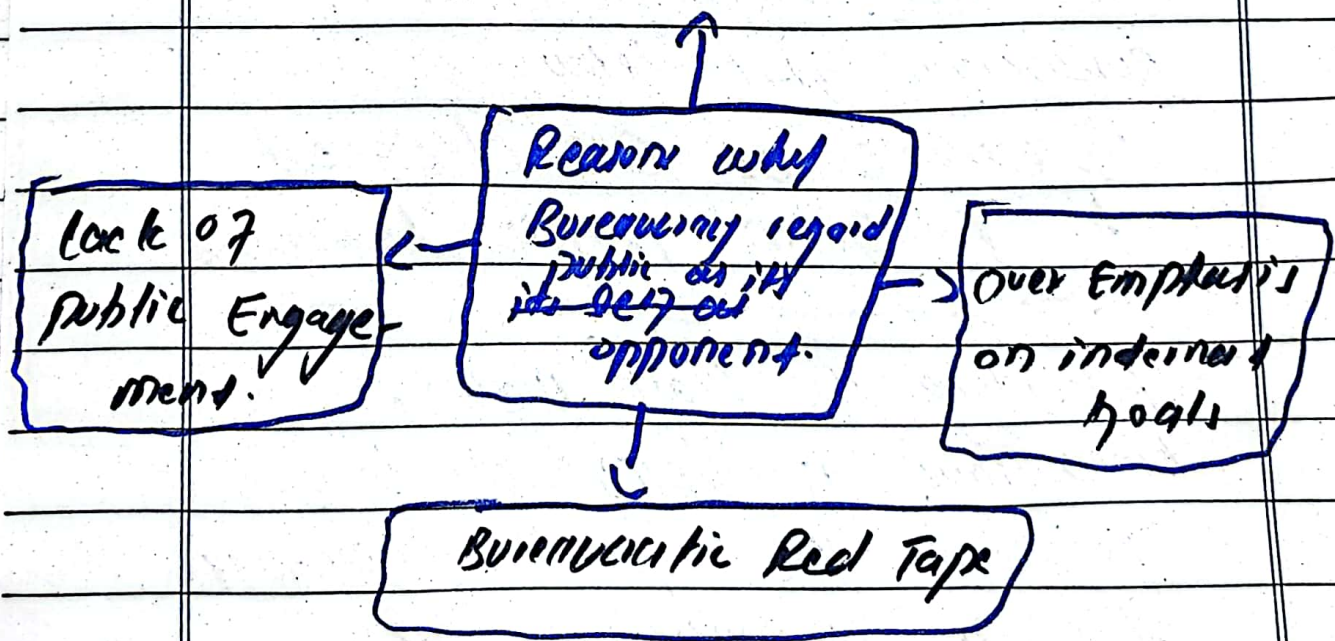 Reasons why
Bureaucracy regard
public as its
opponent.
Lack of
public Engage-
ment.
Over Emphasis
on internal
goals
Bureaucratic Red Tape